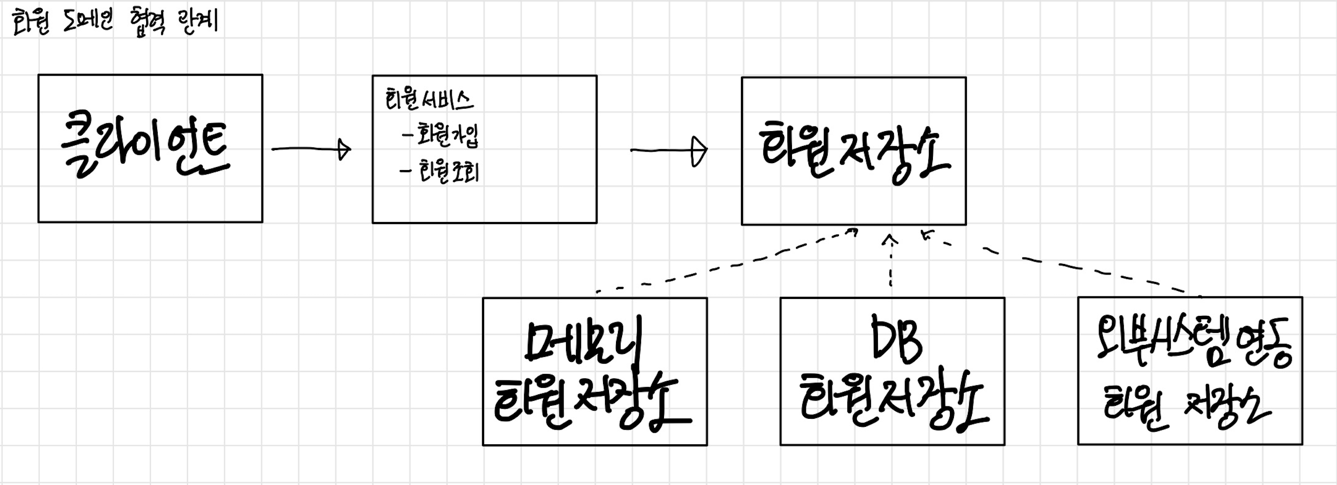 회원 도메인 협력 관계
클라이언트
회원 서비스
- 회원가입
- 회원조회
회원 저장소
메모리
회원 저장소
DB
회원 저장소
외부시스템 연동
회원 저장소